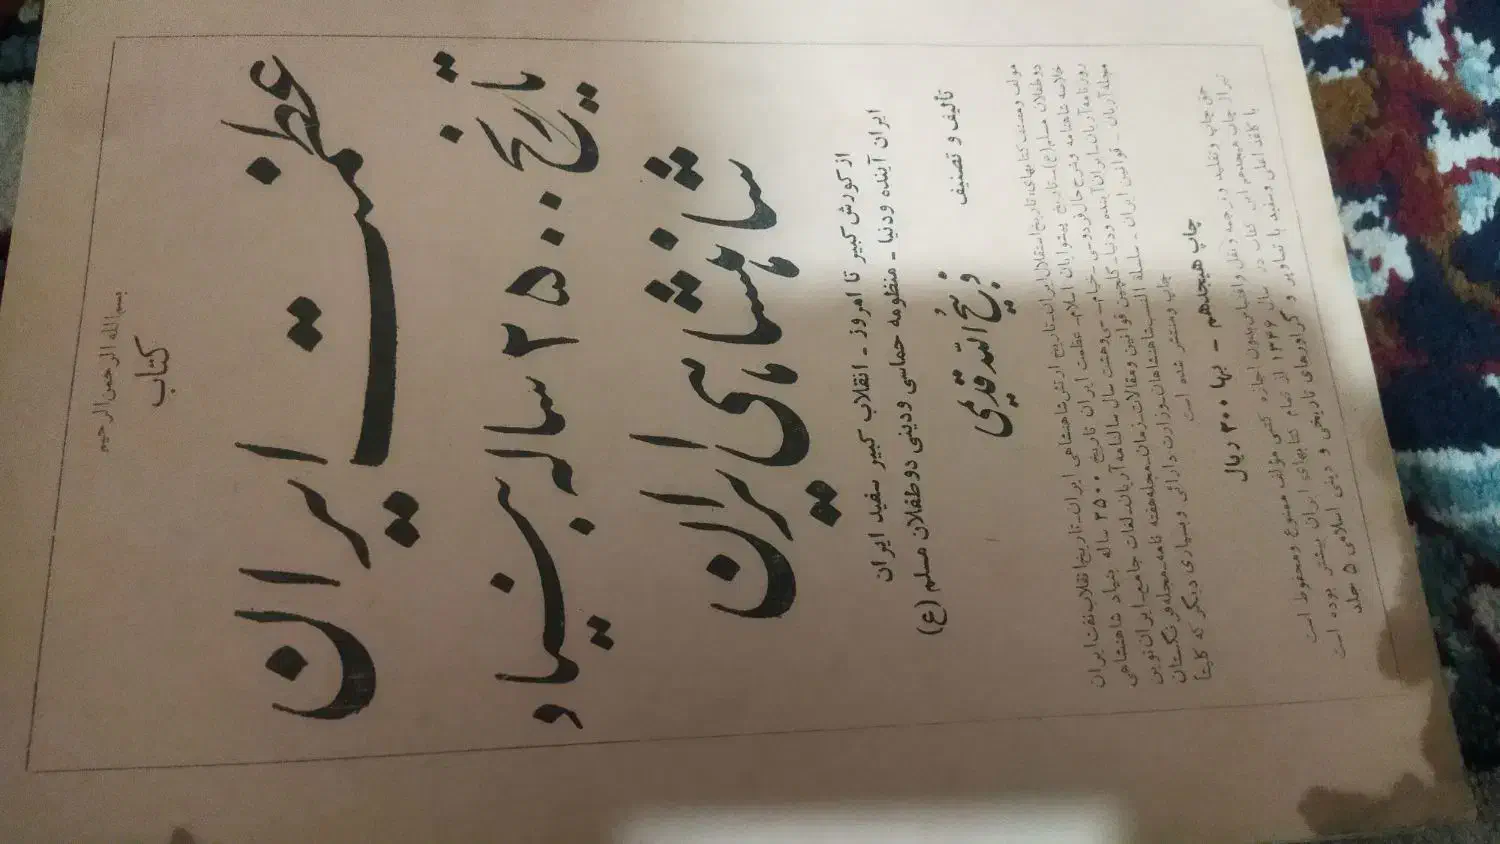 بسم الله الرحمن الرحیم
کتاب
عظمت ایران
تاریخ ۲۵۰۰ ساله بنیاد
شاهنشاهی ایران
از کورش کبیر تا امروز - انقلاب کبیر سفید ایران
ایران آینده و دنیا - منظومه حماسی و دینی دو طفلان مسلم (ع)
تألیف و تصنیف
ذبیح الله قدیمی
مولف و مصنف کتابهای، تاریخ استقلال ایران - تاریخ ارتش شاهنشاهی ایران - تاریخ انقلاب نفت ایران
دو طفلان مسلم (ع) - تاریخ پیشوایان اسلام - عظمت ایران تاریخ ۲۵۰۰ ساله بنیاد شاهنشاهی
خلاصه شاهنامه و شرح حال فردوسی - خیام - سی و هشت سال سالنامه آریان - لغات جامع - ایران نوین
روزنامه آریان - ایران آینده و دنیا - گلچین قوانین و مقالات - زمان - مجله هفته نامه - مجله فرنگستان
مجله آریان - قوانین ایران - سلسله النسب شاهنشاهان - وزارت دارائی و بسیاری دیگر که کلیتاً
چاپ و منتشر شده است
چاپ هیجدهم - بها ۳۰۰ ریال
حق چاپ و تقلید و ترجمه و نقل و اقتباس بدون اجازه کتبی مؤلف ممنوع و محفوظ است
تیراژ چاپ هیجدهم این کتاب در سال ۱۳۴۶ از تمام کتابهای ایران بیشتر بوده است
با کاغذ اعلی و سفید با تصاویر و گراورهای تاریخی و دینی اسلامی ۵ جلد